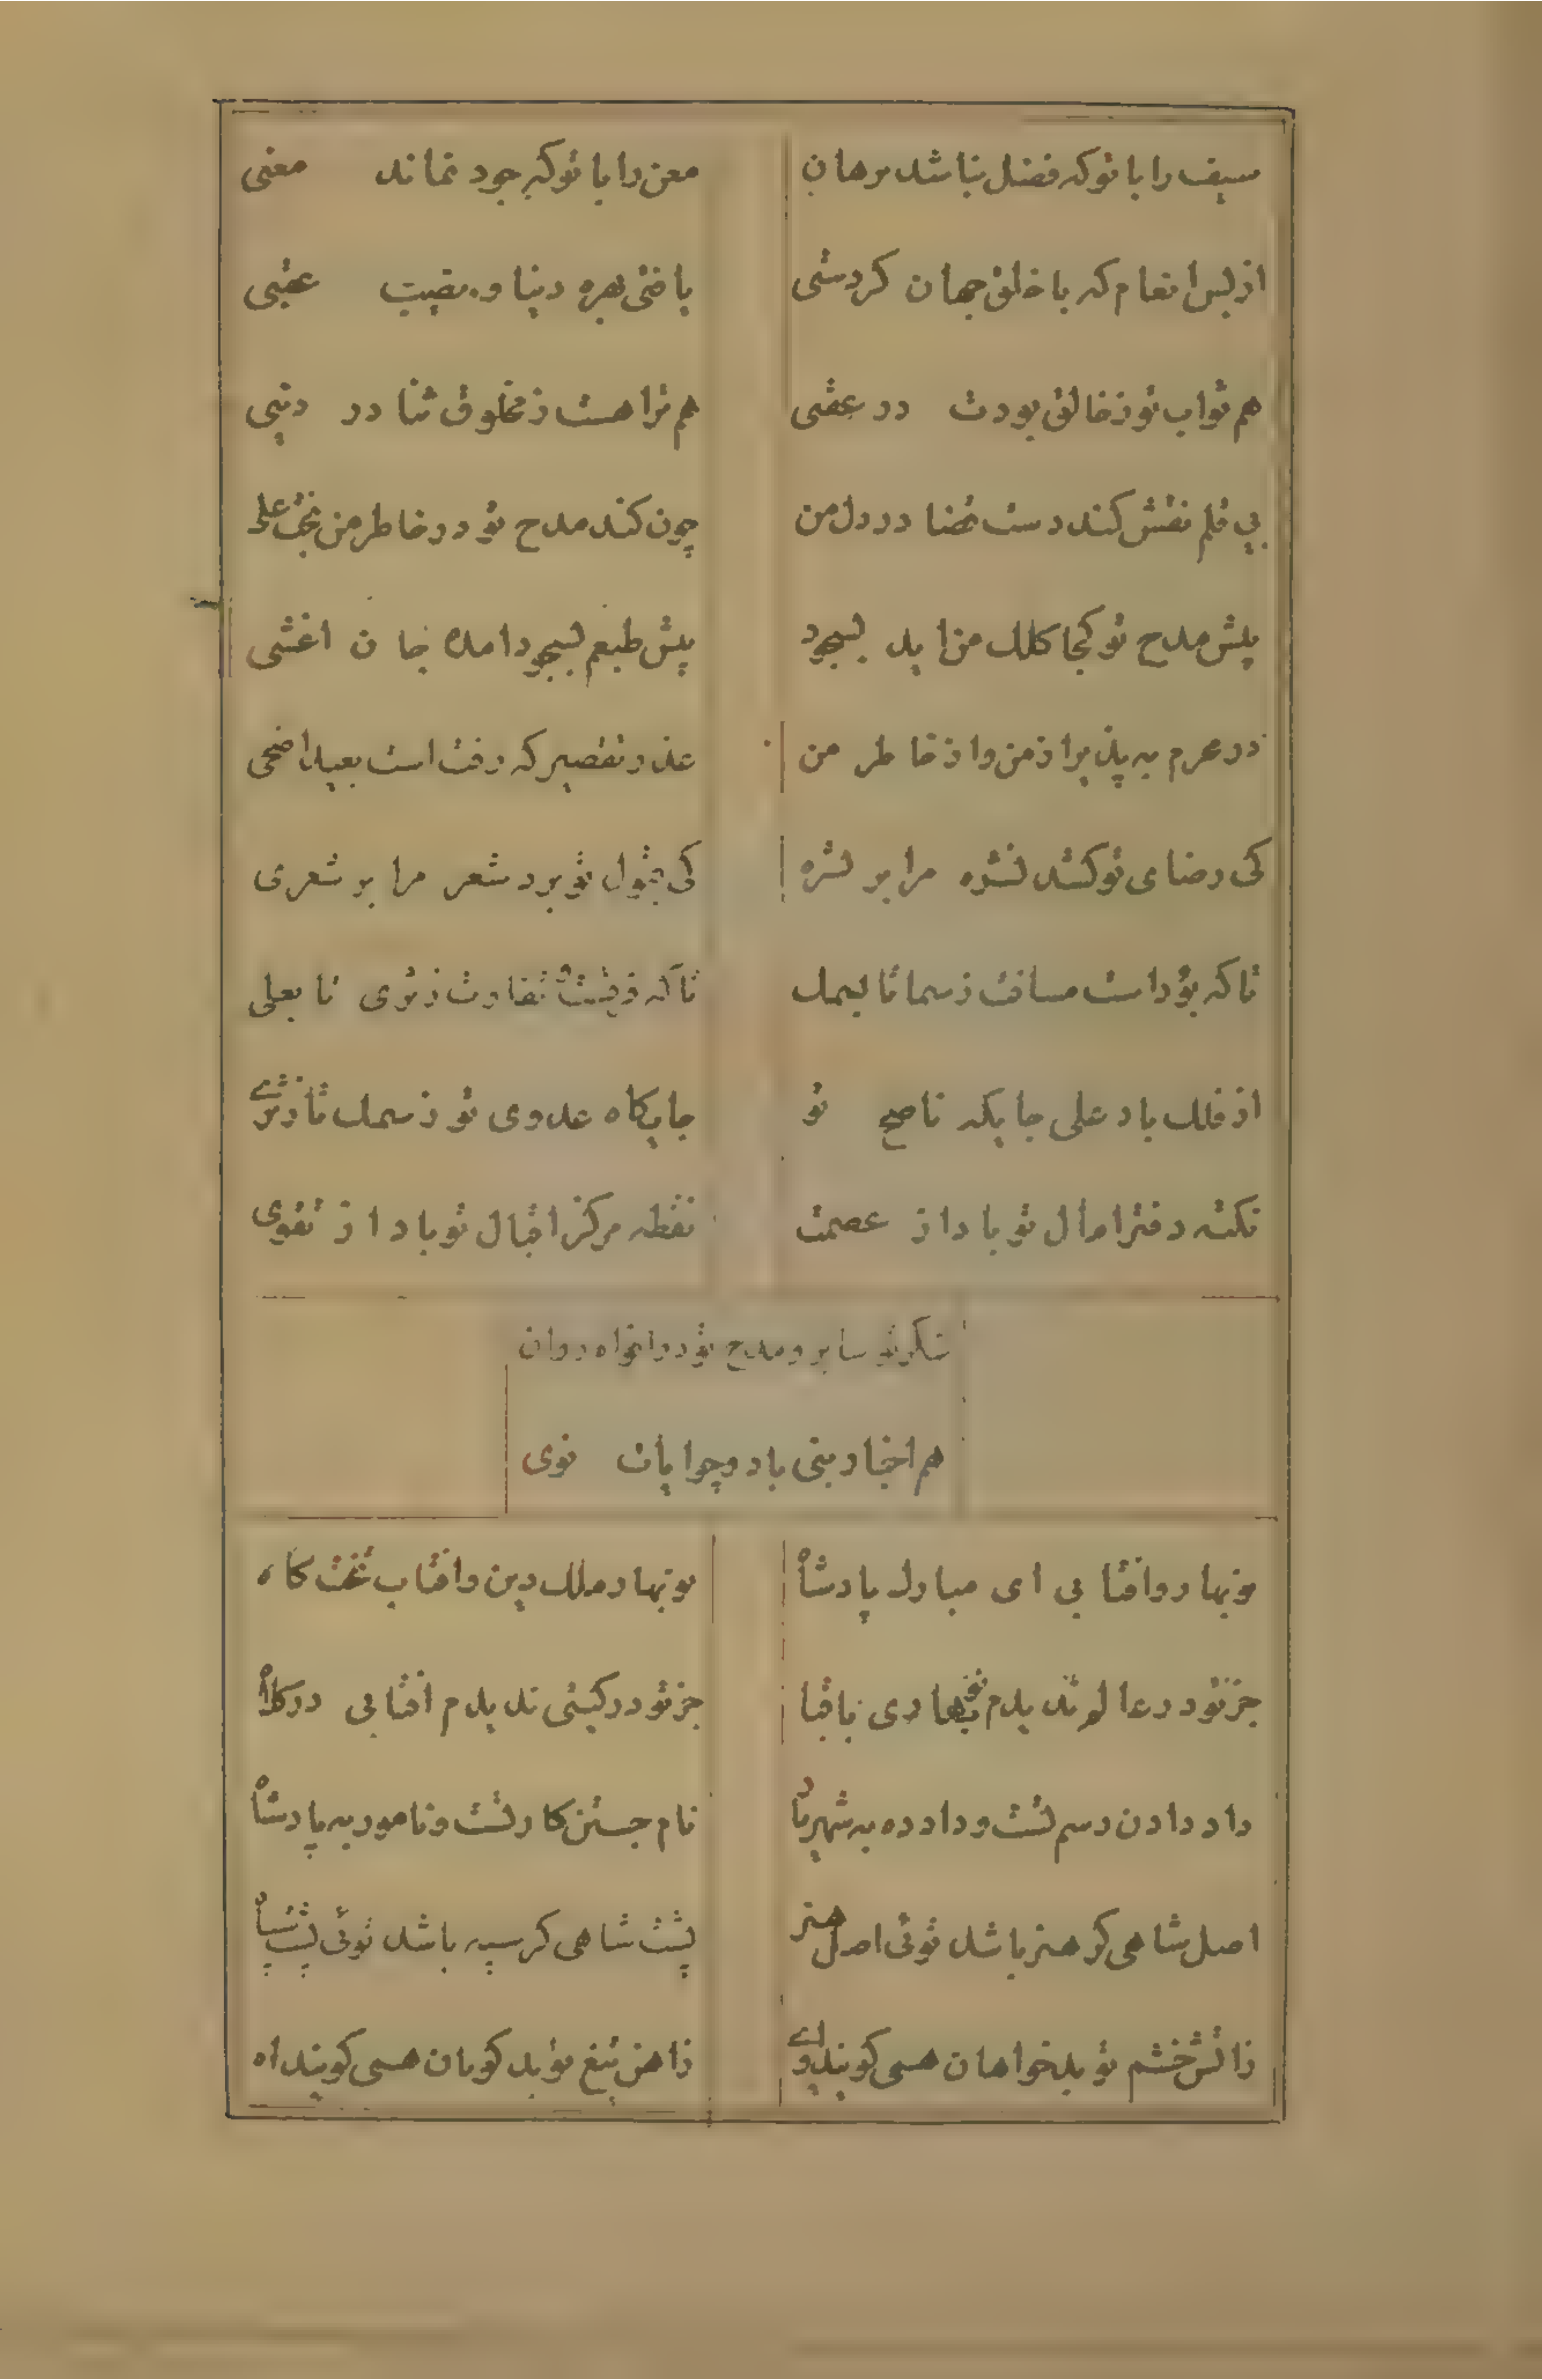 سیف را با تو که فضل نباشد برهان
معن را با تو که جود نماند معنی
از بس انعام که با خلق جهان کردستی
یافتی بهره دنیا و نصیب عقبی
هم ثواب تو ز خالق بودت در عقبی
هم ترا هست ز مخلوق ثنا در دنیی
بی قلم نقش کند دست قضا در دل من
چون کند مدح تو در خاطر من تجلی
پیش مدح تو کجا کلک من اید بسجود
پیش طبعم بسجود امده جان اعشی
در محرم بپذیر از من و از خاطر من
عذر تقصیر که رفت است بعید اضحی
کی رضای تو کشد نثره مرا بر نثره
کی قبول تو برد شعر مرا بر شعری
تا که بود است مسافت ز سما تا بسمک
تا که تفاوت ز ثری تا بعلی
از فلک باد علی جایگه ناصح تو
جایگاه عدوی تو ز سمک تا
نکته دفتر امال تو باد از عصمت
نقطه مرکز اقبال تو باد از تقوی
شکر تو سایر و مدح تو در افواه روان
هم اخبار نبی باد و چو ایات نوی
نوبهار و افتابی ای مبارک پادشاه
نوبهار ملک دین و افتاب تختگاه
جز تو در عالم ندیدم نوبهاری باقبا
جز تو در گیتی ندیدم افتابی در کلاه
داد دادن رسم تست و داد ده به شهریار
نام جستن کار تست و نامور به پادشاه
اصل شاهی گر هنر باشد توئی اصل هنر
پشت شاهی گر سپه باشد توئی پشت سپاه
زاتش خشم تو بدخواهان همی گویند وای
زاهن تیغ تو بدگویان همی گویند اه